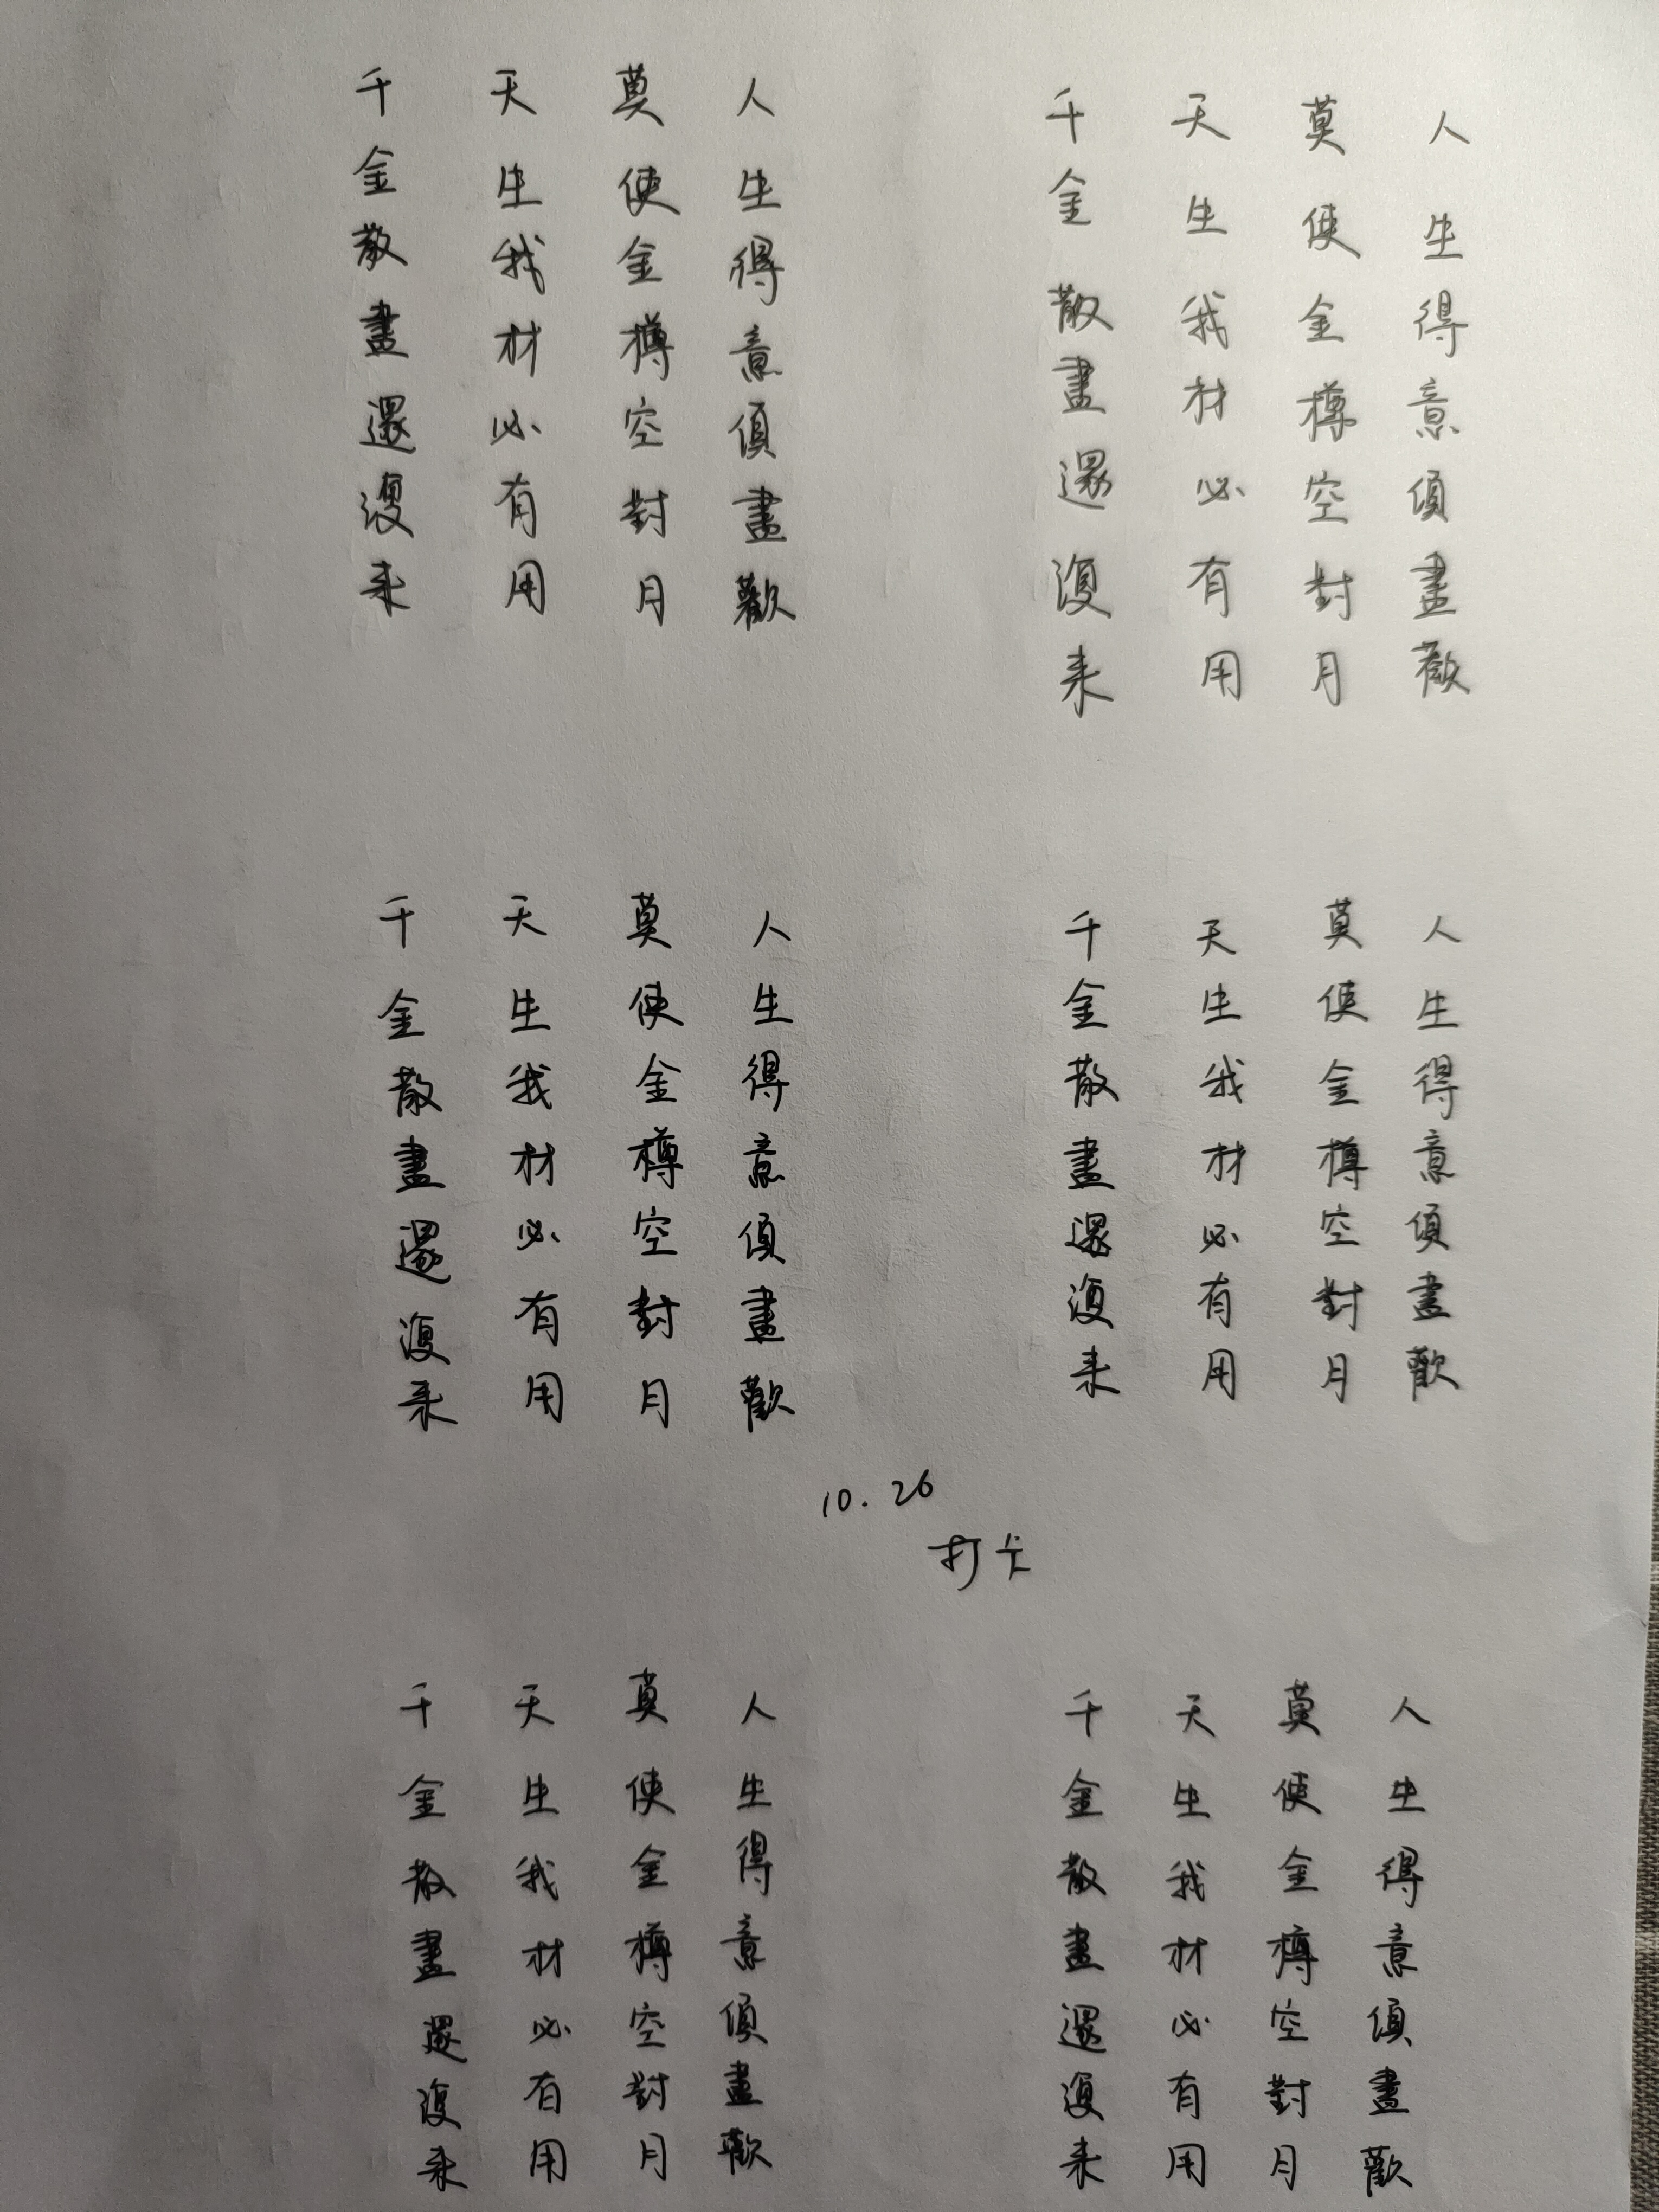 人生得意須盡歡
莫使金樽空對月
天生我材必有用
千金散盡還復来
人生得意須盡歡
莫使金樽空對月
天生我材必有用
千金散盡還復来
人生得意須盡歡
莫使金樽空對月
天生我材必有用
千金散盡還復来
人生得意須盡歡
莫使金樽空對月
天生我材必有用
千金散盡還復来
10.26
打卡
人生得意須盡歡
莫使金樽空對月
天生我材必有用
千金散盡還復来
人生得意須盡歡
莫使金樽空對月
天生我材必有用
千金散盡還復来